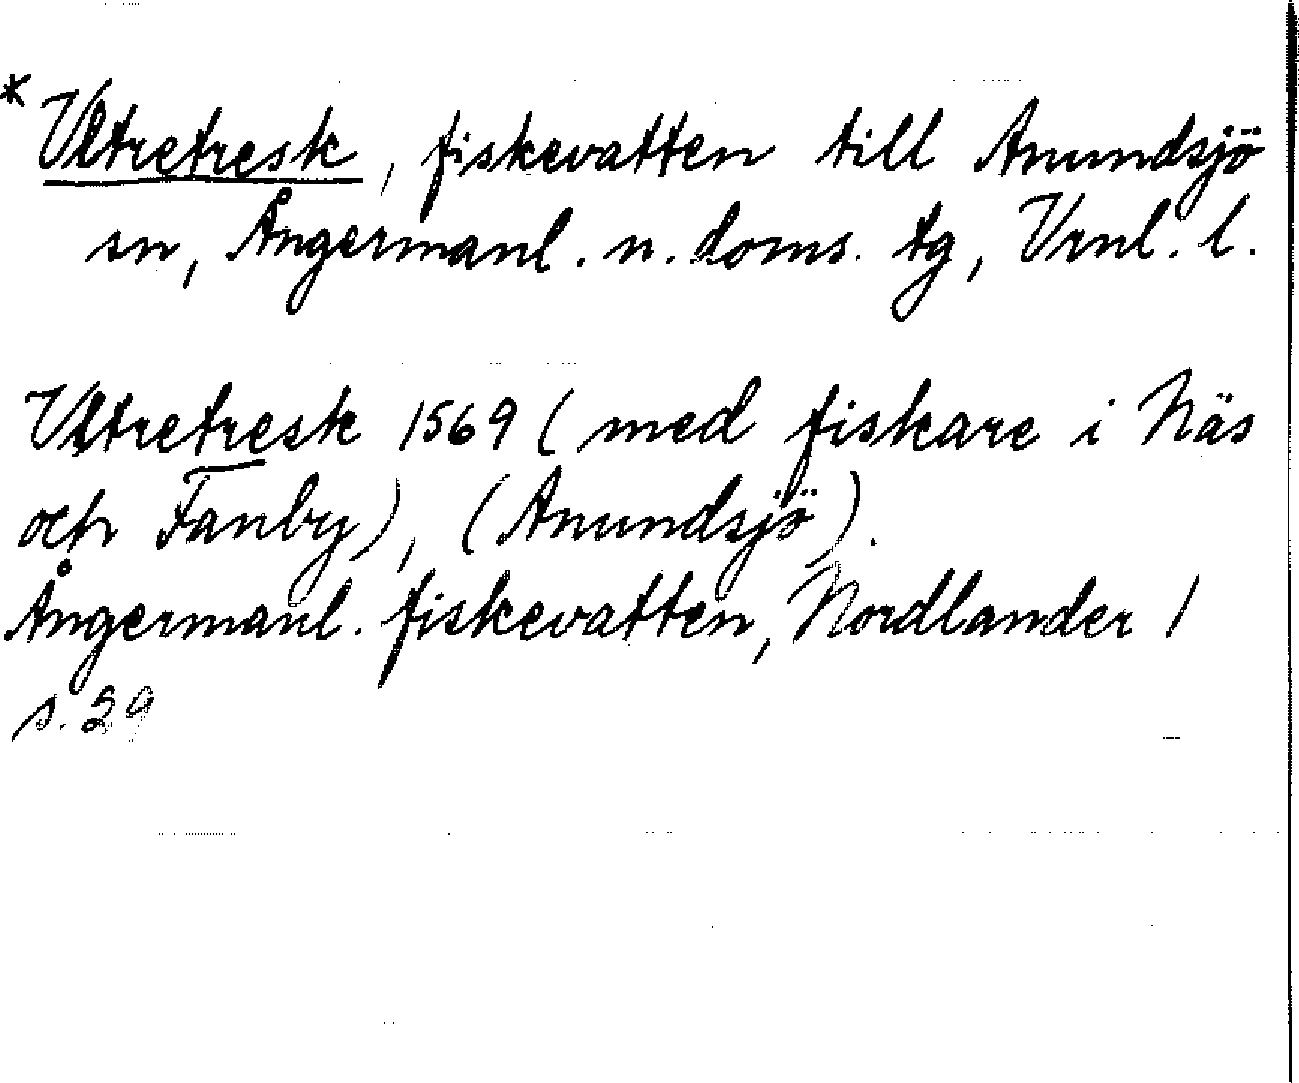 * Vltretresk, fiskevatten till Anundsjö
sn, Ångermanl. n. doms. tg, Vrnl. l.
Vltretresk 1569 (med fiskare i Näs
och Fanby), (Anundsjö).
Ångermanl. fiskevatten, Nordlander 1
s. 29